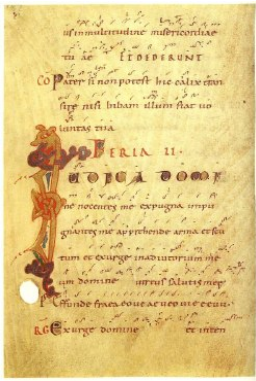 us inmultitudine misericordiae
tu ae ET DEDERUNT
CO Pater si non potest hic calix tran
sire nisi bibam illum fiat vo
luntas tua
FERIA II.
IUDICA DOMI
ne nocentes me expugna inpu
gnantes me apprehende arma et scu
tum et exurge inadiutorium me
um domine virtus salutis meę
Effunde
RG Exurge domine et inten